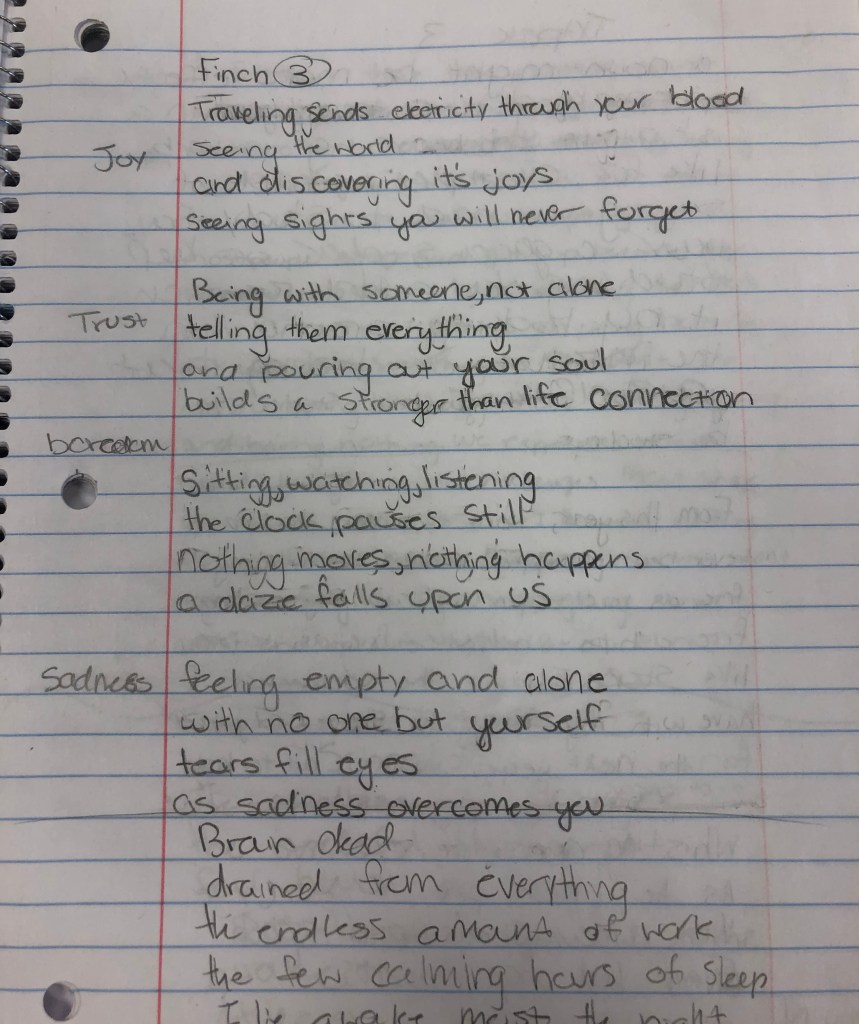 Finch 3
Traveling sends electricity through your blood
Joy seeing the world
and discovering it's joys
seeing sights you will never forget
Being with someone, not alone
Trust telling them everything
and pouring out your soul
builds a stronger than life connection
boredom
Sitting, watching, listening
the clock pauses still
nothing moves, nothing happens
a daze falls upon us
Sadness feeling empty and alone
with no one but yourself
tears fill eyes
as sadness overcomes you
Brain
drained from everything
the endless amount of work
the few calming hours of sleep
I lie awake most the night